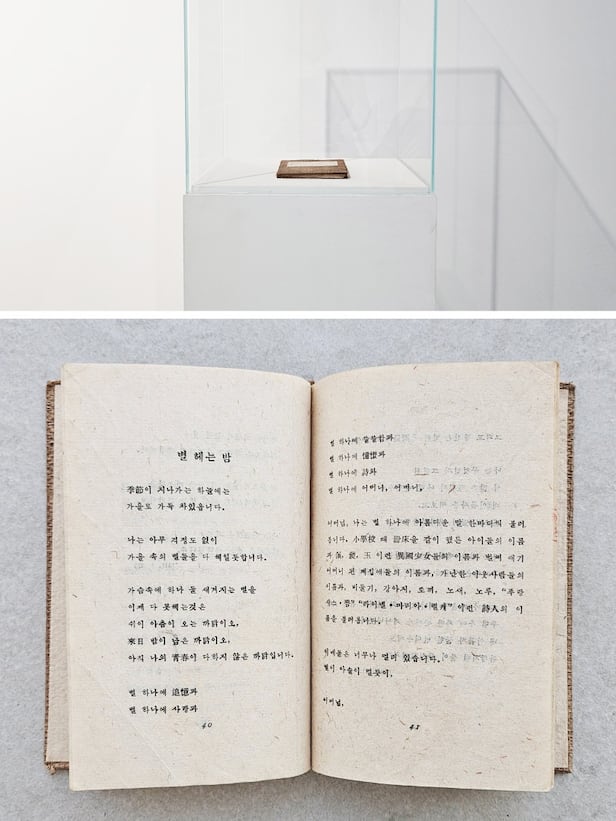 별 헤는 밤
季節이 지나가는 하늘에는
가을로 가득 차있읍니다.
나는 아무 걱정도 없이
가을 속의 별들을 다 헤일듯합니다.
가슴속에 하나 둘 새겨지는 별을
이제 다 못헤는것은
쉬이 아츰이 오는 까닭이오,
來日 밤이 남은 까닭이오,
아직 나의 靑春이 다하지 않은 까닭입니다.
별 하나에 追憶과
별 하나에 사랑과
40
별 하나에 쓸쓸함과
별 하나에 憧憬과
별 하나에 詩와
별 하나에 어머니, 어머니,
어머님, 나는 별 하나에 아름다운 말 한마디식 불러
봅니다. 小學校 때 冊床을 같이 했든 아이들의 이름
과 玉 이런 異國少女들의 이름과 벌써 애기
어머니 된 게집애들의 이름과, 가난한 이웃사람들의
이름과, 비둘기, 강아지, 토끼, 노새, 노루, "푸랑
시스・짬" "라이넬・마리아・릴케" 이런 詩人의 이
름을 불러봅니다.
이네들은 너무나 멀리 있습니다.
별이 아슬이 멀듯이,
어머님,